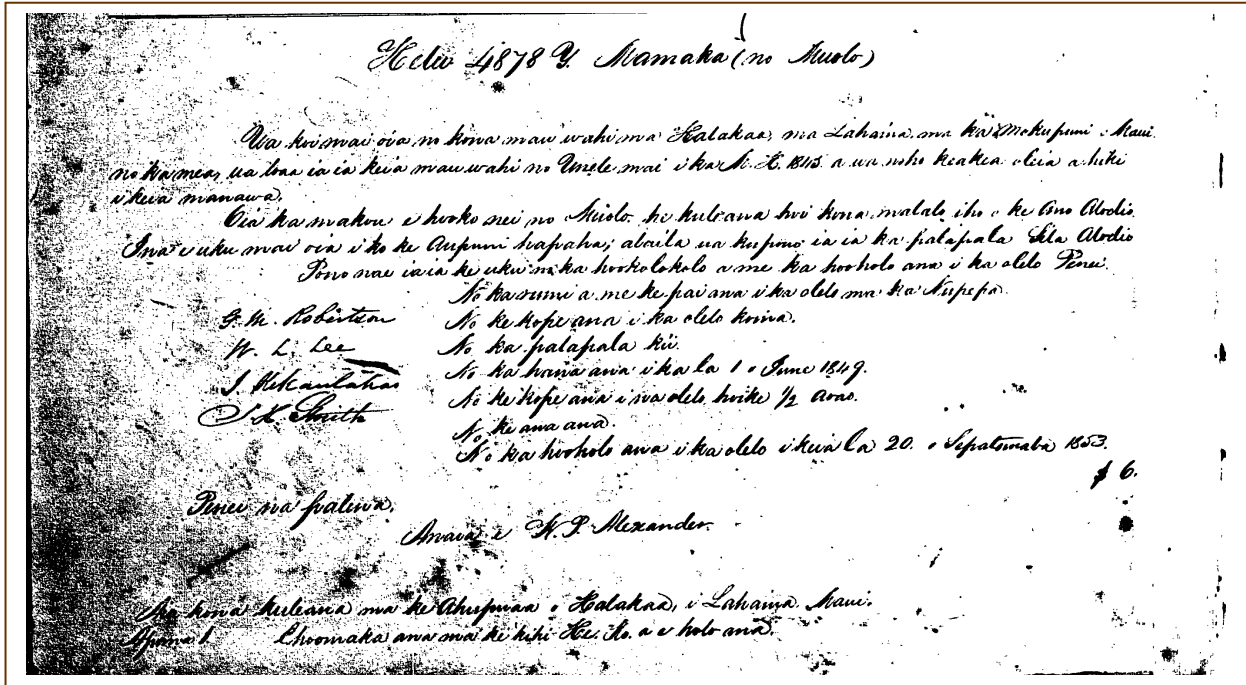 Helu 4878 Y. Mamaka (no Muolo)
Ua koi mai oia no kona mau wahi ma Halakaa, ma Lahaina, ma ka mokupuni o Maui.
no ka mea, ua loaa ia ia keia mau wahi no Umele mai i ka M. H. 1843. a ua noho keakea oleia a hiki
i keia manawa.
Oia ka makou e hooko nei no Muolo he kuleana hoi kona malalo iho o ke Ano Alodio.
Ina e uku mai oia i ko ke Aupuni hapaha; alaila ua kupono ia ia ka palapala Sila Alodio
Pono nae ia ia ke uku i na ka hookolokolo a me ka hooholo ana i ka olelo Penei.
No ka rumi a me ke pai ana i ka olelo ma ka Nupepa.
G. M. Robertson No ke kope ana i ka olelo koina.
W. L. Lee No ka palapala kii.
J. Kekaulahao No ka hana ana i ka la 1 o June 1849.
J. H. Smith No ke kope ana i na olelo hoike 1/2 aoao.
No ke ana ana.
No ka hooholo ana i ka olelo i keia la 20. o Sepatemaba 1853.
$ 6.
Penei na palena,
Anaia e W. P. Alexander.
Ma kona kuleana ma ke Ahupuaa o Halakaa, i Lahaina Maui.
Apana 1. E hoomaka ana ma ke kihi He. Ko. a e holo ana.